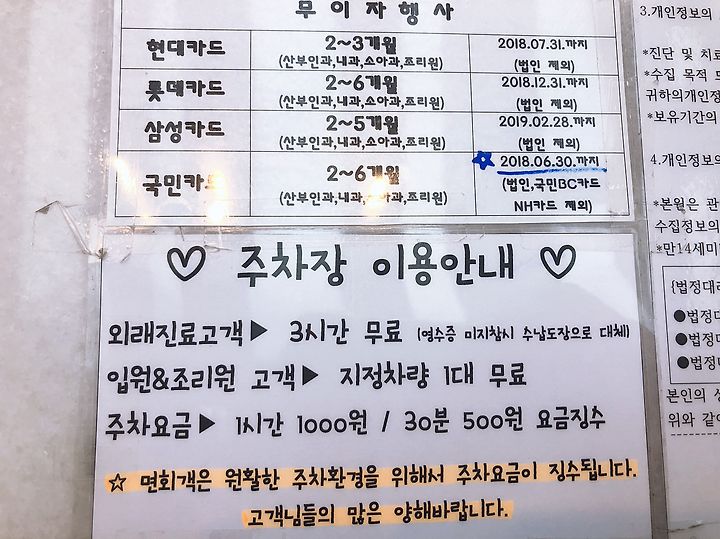 무이자행사
현대카드 2~3개월 2018.07.31.까지
(산부인과,내과,소아과,조리원) (법인 제외)
롯데카드 2~6개월 2018.12.31.까지
(산부인과,내과,소아과,조리원) (법인 제외)
삼성카드 2~5개월 2019.02.28.까지
(산부인과,내과,소아과,조리원) (법인 제외)
국민카드 2~6개월 ☆ 2018.06.30.까지
(산부인과,내과,소아과,조리원) (법인,국민BC카드
NH카드 제외)
♡ 주차장 이용안내 ♡
외래진료고객▶ 3시간 무료 (영수증 미지참시 수납도장으로 대체)
입원&조리원 고객▶ 지정차량 1대 무료
주차요금▶ 1시간 1000원 / 30분 500원 요금징수
☆ 면회객은 원활한 주차환경을 위해서 주차요금이 징수됩니다.
고객님들의 많은 양해바랍니다.
3.개인정보의
*진단 및 치료
*수집 목적
귀하의개인정
*보유기간의
4.개인정보의
*본원은 관
수집정보의
*만14세미
{법정대리
●법정대
●법정대
●법정대
본인의 성
위와 같이